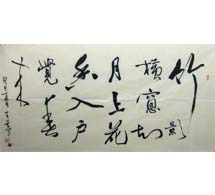 竹影
橫窗知
月上花
香入户
覺春
来